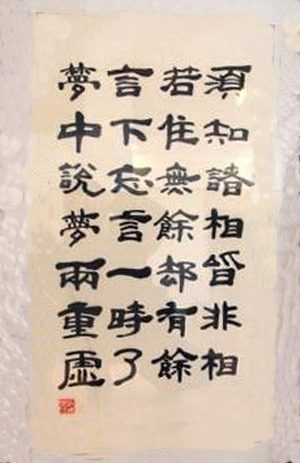 須知諸相皆非相
若住無餘却有餘
言下忘言一時了
夢中說夢兩重虛